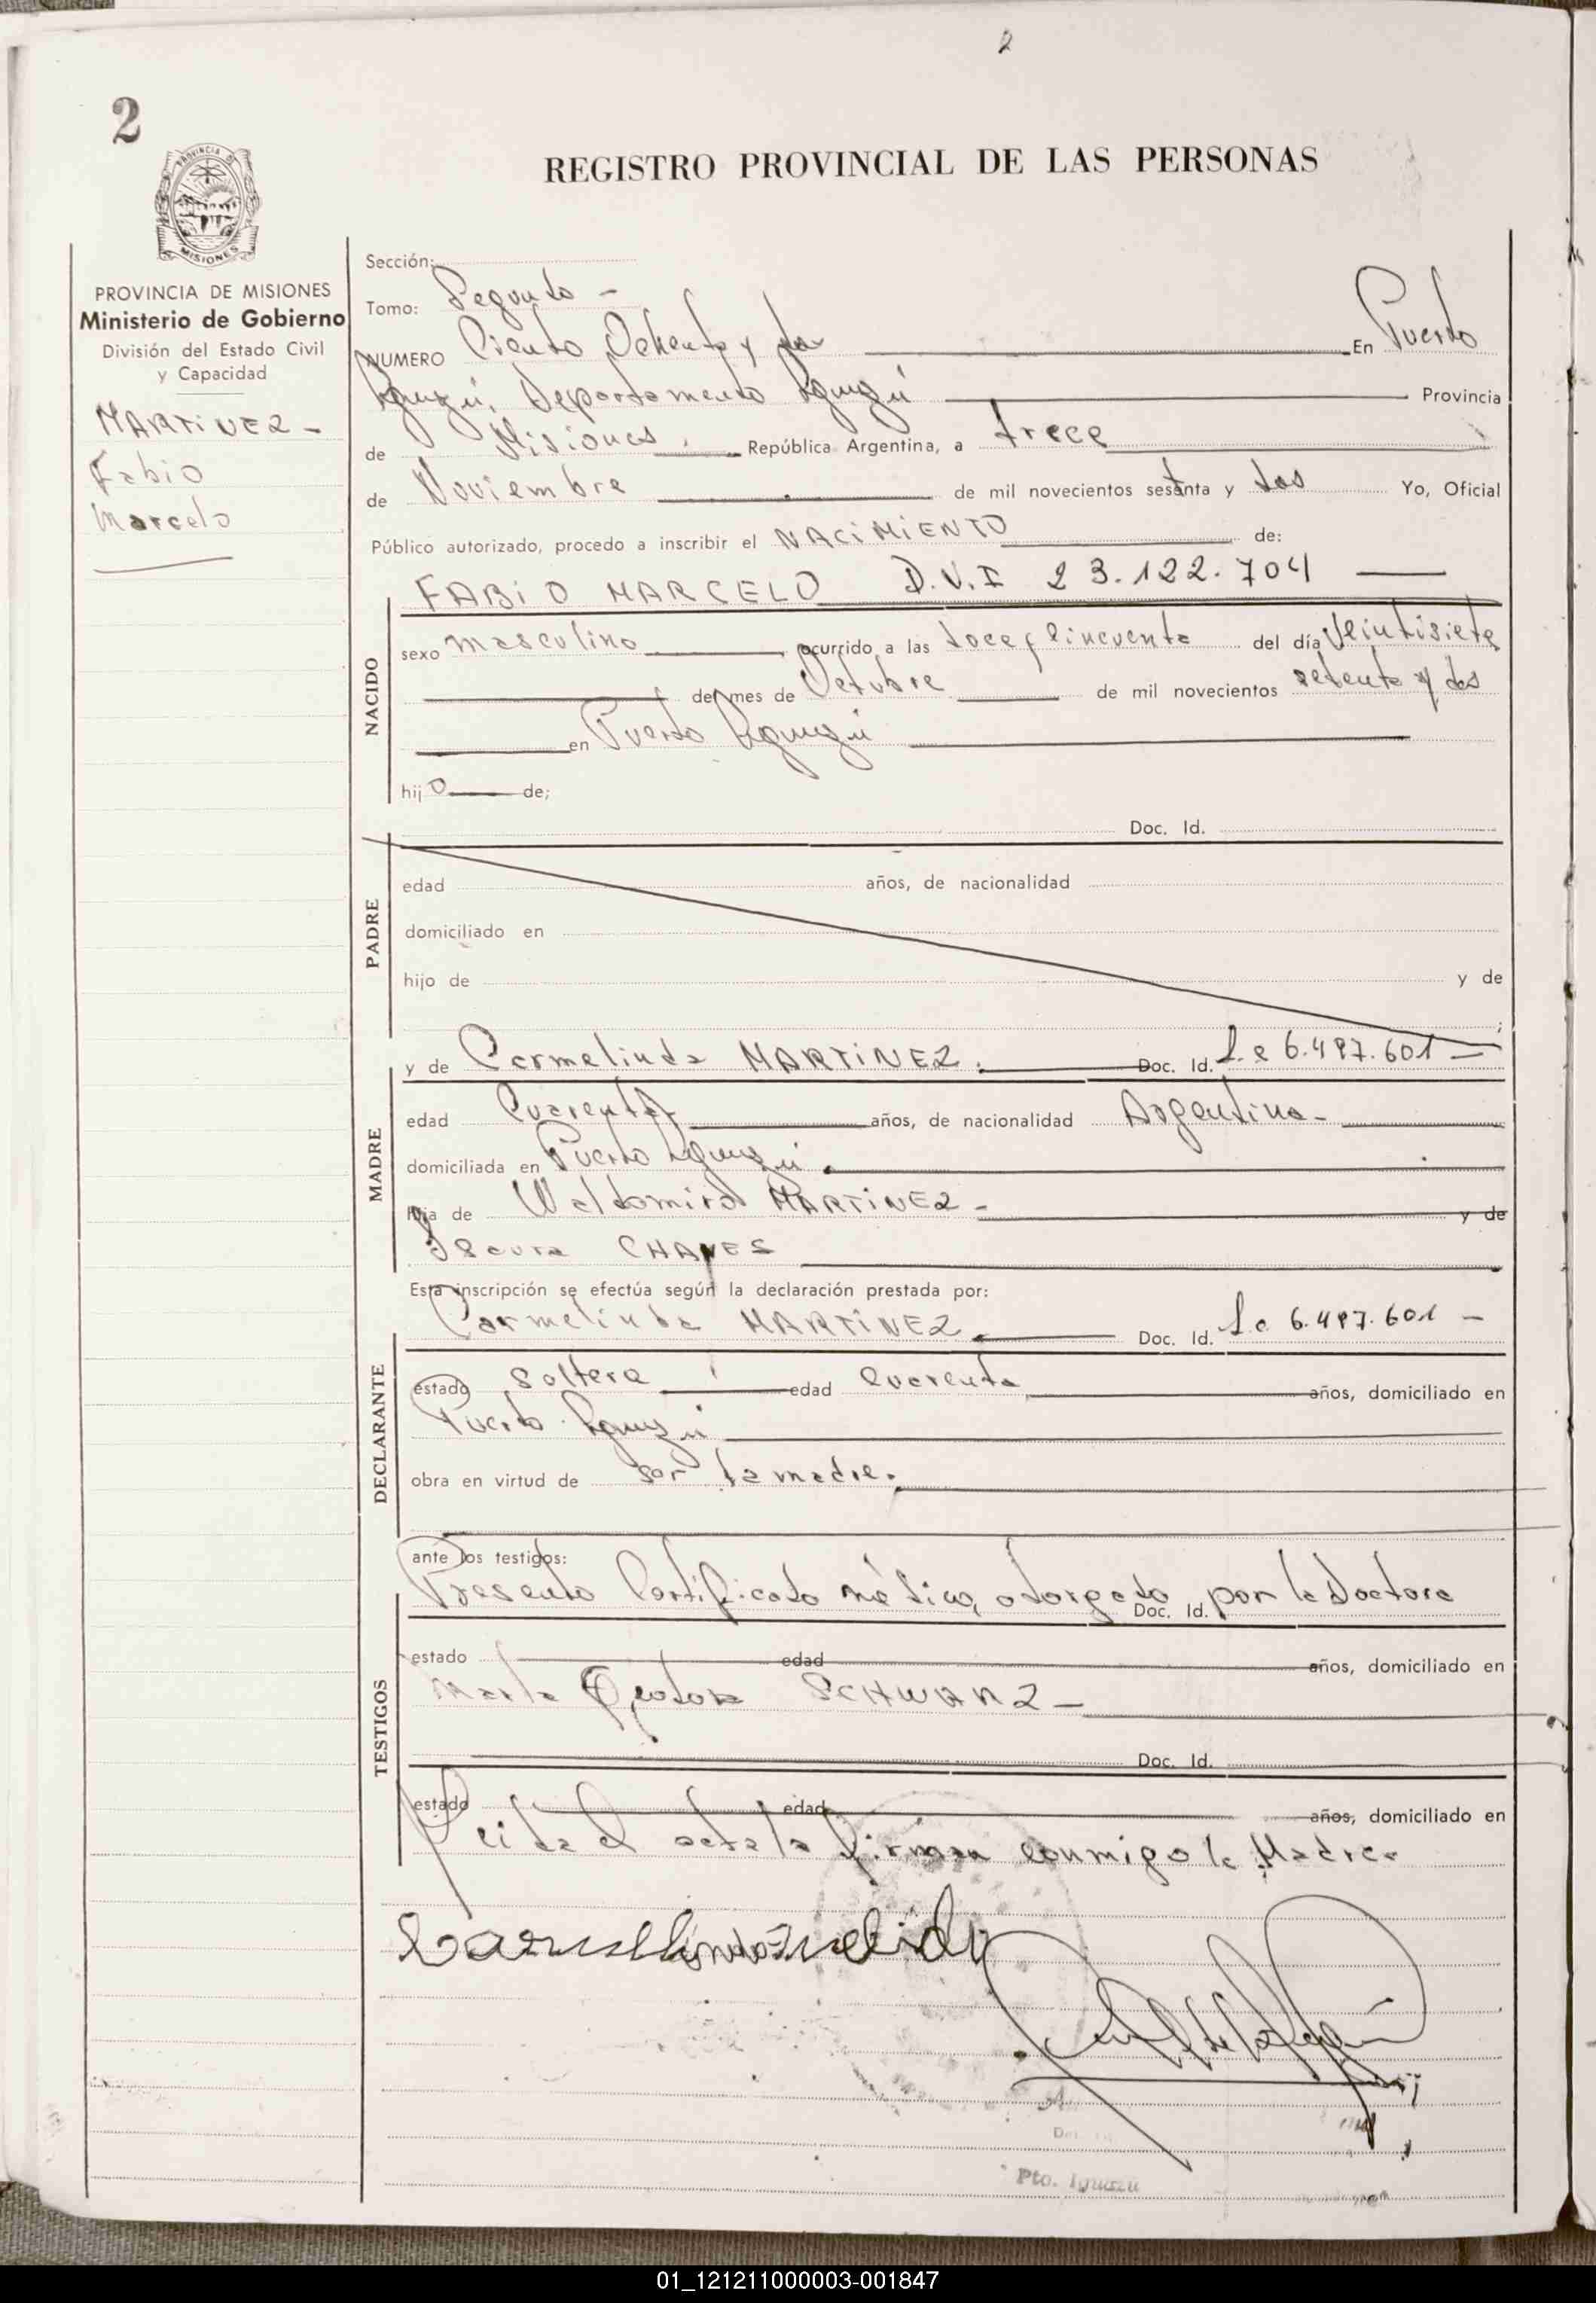 2
2
PROVINCIA DE MISIONES
REGISTRO PROVINCIAL DE LAS PERSONAS
PROVINCIA DE MISIONES
Ministerio de Gobierno
División del Estado Civil
y Capacidad
MARTINEZ -
Fabio
Marcelo
Sección:
Tomo: Segundo -
NUMERO Ciento Ochenta y dos En Puerto
Iguazú, Departamento Iguazú Provincia
de Misiones, República Argentina, a trece
de Noviembre de mil novecientos setenta y dos Yo, Oficial
Público autorizado, procedo a inscribir el NACIMIENTO de:
FABIO MARCELO D.N.I 23.122.704
NACIDO
sexo masculino ocurrido a las doce y cincuenta del día Veintisiete
del mes de Octubre de mil novecientos setenta y dos
en Puerto Iguazú
hijo de;
PADRE
Doc. Id.
edad años, de nacionalidad
domiciliado en
hijo de y de
;
MADRE
y de Carmelinda MARTINEZ. Doc. Id. L.c 6.497.601 -
edad Cuarenta años, de nacionalidad Argentina -
domiciliada en Puerto Iguazú
hija de Waldomiro MARTINEZ - y de
CHAVES
Esta inscripción se efectúa según la declaración prestada por:
DECLARANTE
Carmelinda MARTINEZ Doc. Id. L.c. 6.497.601 -
estado soltera edad cuarenta años, domiciliado en
Puerto Iguazú
obra en virtud de ser la madre.
TESTIGOS
ante los testigos:
Presento Certificado médico, otorgado por la Doctora
Doc. Id.
estado edad años, domiciliado en
Marta SCHWARZ -
Doc. Id.
estado edad años, domiciliado en
Leida el acta la firman conmigo la Madre.
Pto. Iguazú
01_121211000003-001847